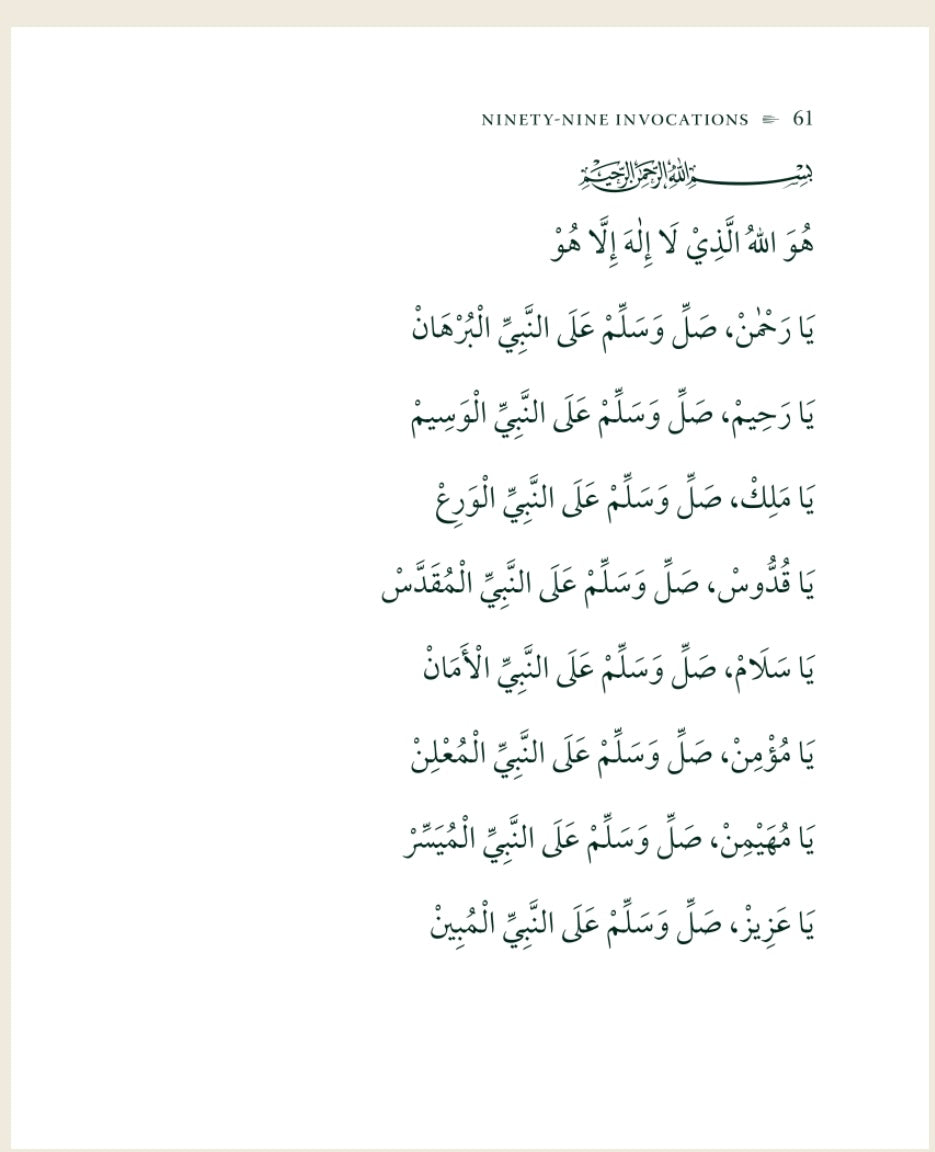 NINETY-NINE INVOCATIONS 61
بِسْمِ اللهِ الرَّحْمٰنِ الرَّحِيْمِ
هُوَ اللهُ الَّذِيْ لَا إِلٰهَ إِلَّا هُوْ
يَا رَحْمٰنْ، صَلِّ وَسَلِّمْ عَلَى النَّبِيِّ الْبُرْهَانْ
يَا رَحِيمْ، صَلِّ وَسَلِّمْ عَلَى النَّبِيِّ الْوَسِيمْ
يَا مَلِكْ، صَلِّ وَسَلِّمْ عَلَى النَّبِيِّ الْوَرِعْ
يَا قُدُّوسْ، صَلِّ وَسَلِّمْ عَلَى النَّبِيِّ الْمُقَدَّسْ
يَا سَلَامْ، صَلِّ وَسَلِّمْ عَلَى النَّبِيِّ الْأَمَانْ
يَا مُؤْمِنْ، صَلِّ وَسَلِّمْ عَلَى النَّبِيِّ الْمُعْلِنْ
يَا مُهَيْمِنْ، صَلِّ وَسَلِّمْ عَلَى النَّبِيِّ الْمُيَسِّرْ
يَا عَزِيزْ، صَلِّ وَسَلِّمْ عَلَى النَّبِيِّ الْمُبِينْ